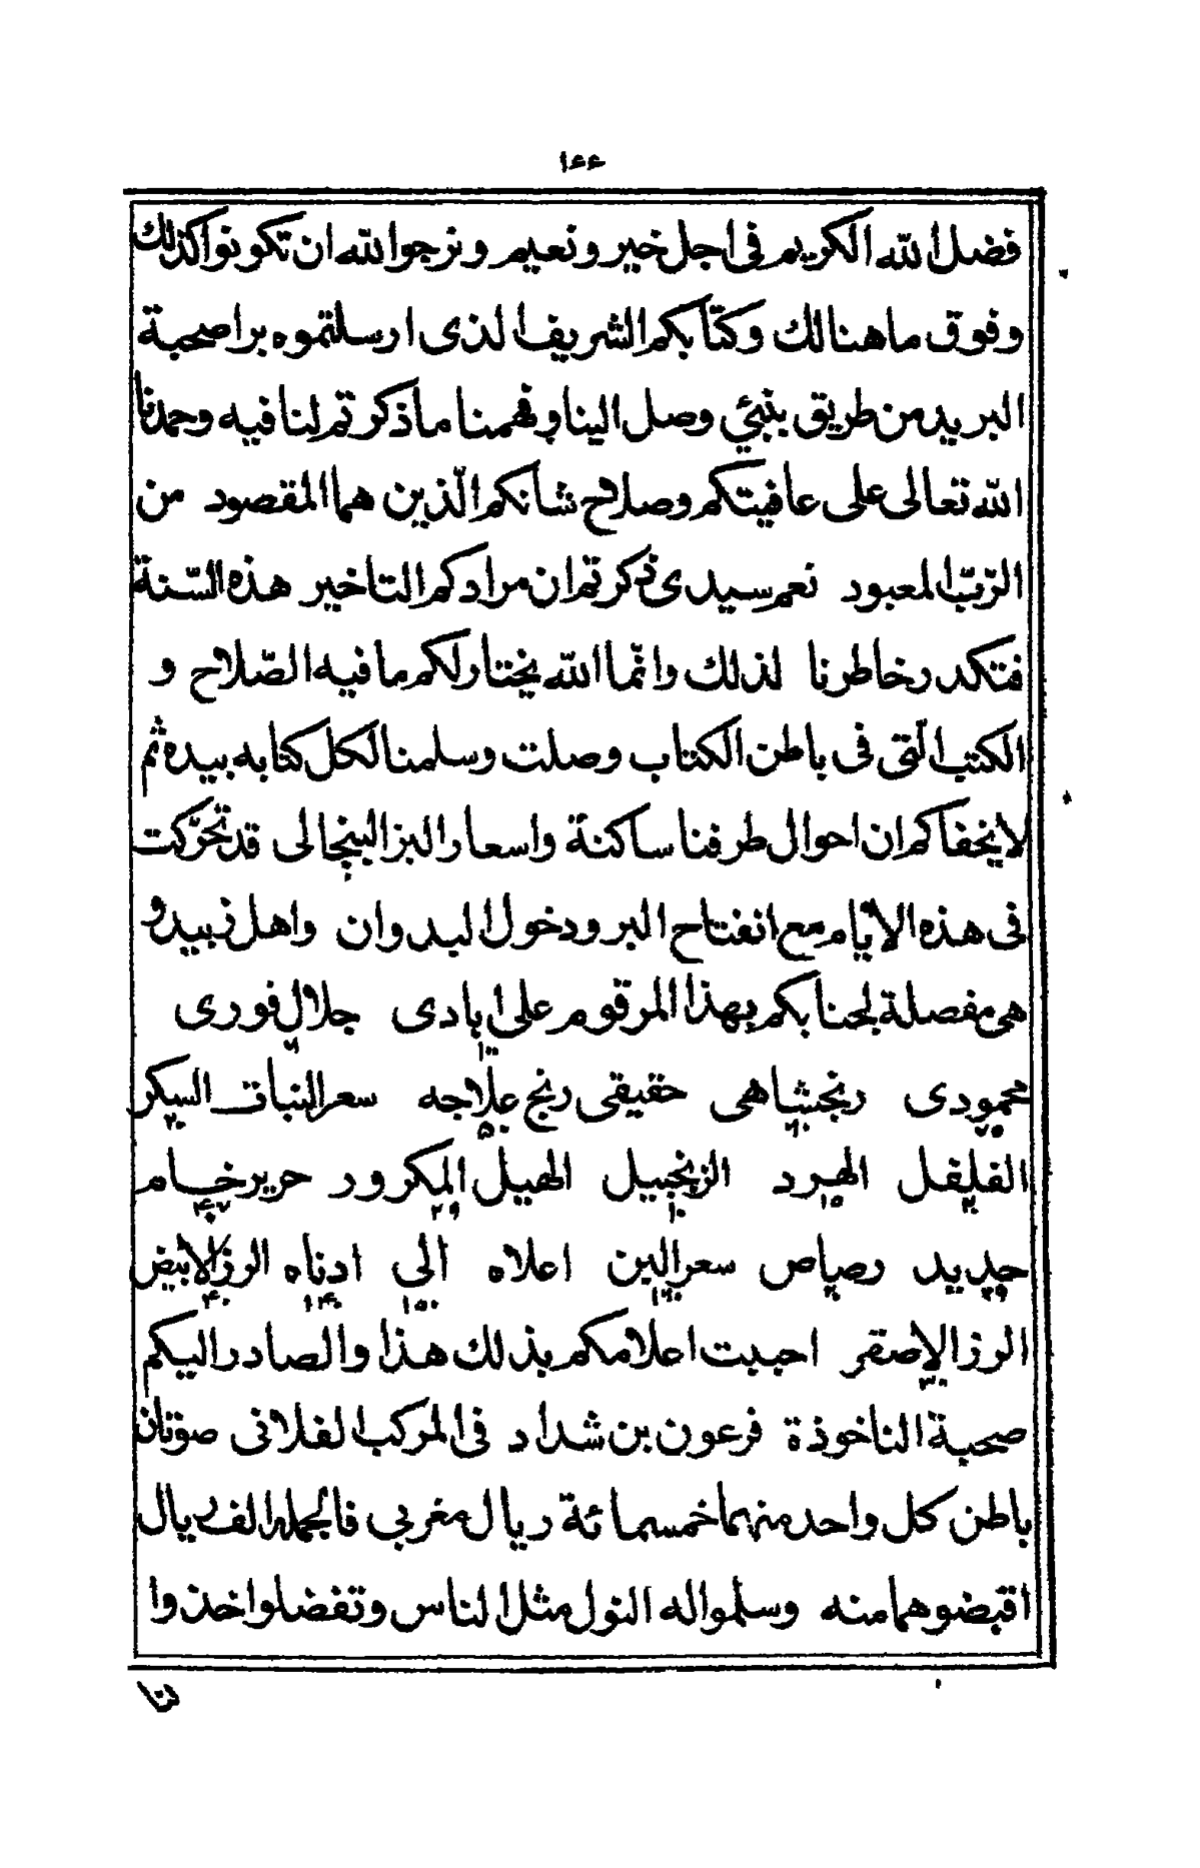 ١٤٤
فضل الله الكريم فى اجل خير ونعيم ونرجوا لله ان تكونوا كذلك
وفوق ما هنالك وكتابكم الشريف الذى ارسلتموه برا صحبة
البريد من طريق بنبئي وصل الينا وفهمنا ما ذكرتم لنا فيه وحمدنا
الله تعالى على عافيتكم وصلاح شانكم الّذين هما المقصود من
الرّبّ المعبود نعم سيدى ذكرتم ان مرادكم التاخير هذه السّنة
فتكدر خاطرنا لذلك وانّما الله يختار لكم ما فيه الصّلاح و
الكتب الّتى فى باطن الكتاب وصلت وسلمنا لكل كتابه بيده ثم
لا يخفاكم ان احوال طرفنا ساكنة واسعار البز البنجالى قد تحرّكت
فى هذه الايّام مع انفتاح البر ودخول البدوان واهل زبيد و
هى مفصلة لجنابكم بهذا المرقوم على ابادى جلال فورى
١٠٠
محمودى رنجشاهى حقيقى رنج علاجه سعر النبات السكر
٦٠ ٥٠ ٢٠
الفلفل الهرد الزنجبيل الهيل المكرور حرير خام
٢٠ ١٥ ١٠ ٢٩
حديد رصاص سعر البن اعلاه الى ادناه الرز الابيض
٢٩ ٢٠ ١٦٠ ١٥٠ ١٤٠ ٤٠
الرز الاصقر احببت اعلامكم بذلك هذا والصادر اليكم
٣٠
صحبة الناخوذة فرعون بن شداد فى المركب الفلانى صوتان
باطن كل واحد منهما خمسمائة ريال مغربى فالجمله الف ريال
اقبضوهما منه وسلموا له النول مثل الناس وتفضلوا خذوا
لنا